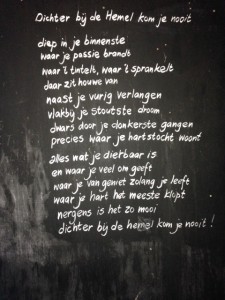 Dichter bij de Hemel kom je nooit
diep in je binnenste
waar je passie brandt
waar 't tintelt, waar 't sprankelt
daar zit houwe van
naast je vurig verlangen
vlakbij je stoutste droom
dwars door je donkerste gangen
precies waar je hartstocht woont
alles wat je dierbaar is
en waar je veel om geeft
waar je van geniet zolang je leeft
waar je hart het meeste klopt
nergens is het zo mooi
dichter bij de hemel kom je nooit!